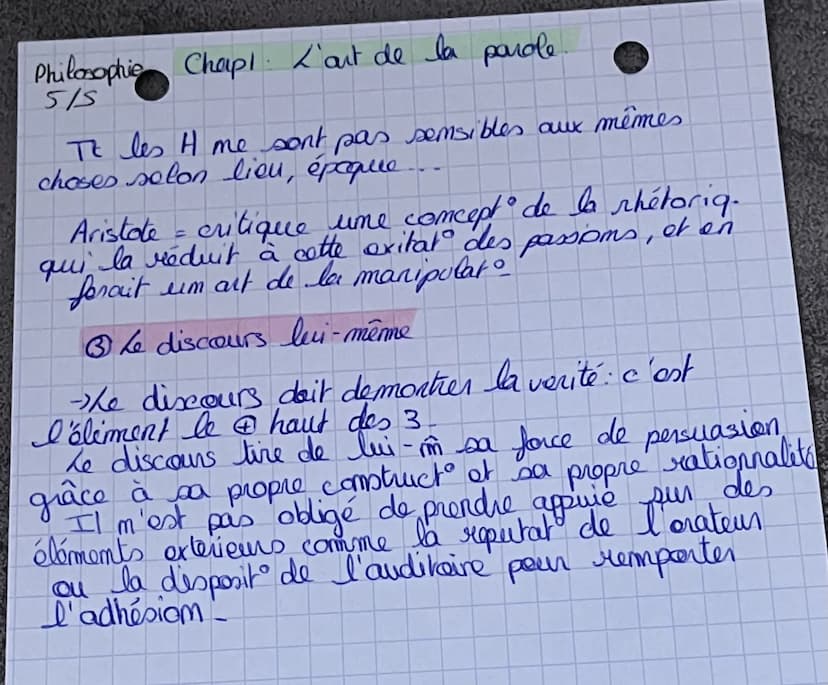 Philosophie Chap1. L'art de la parole.
5/5
Tt les H ne sont pas sensibles aux mêmes
choses selon lieu, époque...
Aristote = critique une concept° de la rhétoriq.
qui la réduit à cette exitat° des passions, et en
ferait un art de la manipulat°
③ Le discours lui-même
→ Le discours doit démontrer la vérité : c'est
l'élément le ⊕ haut des 3.
Le discours tire de lui-m̂ sa force de persuasion
grâce à sa propre construct° et sa propre rationnalité
Il n'est pas obligé de prendre appuie sur des
éléments exterieurs comme la reputat° de l'orateur
ou la disposit° de l'auditoire pour remporter
l'adhésion.